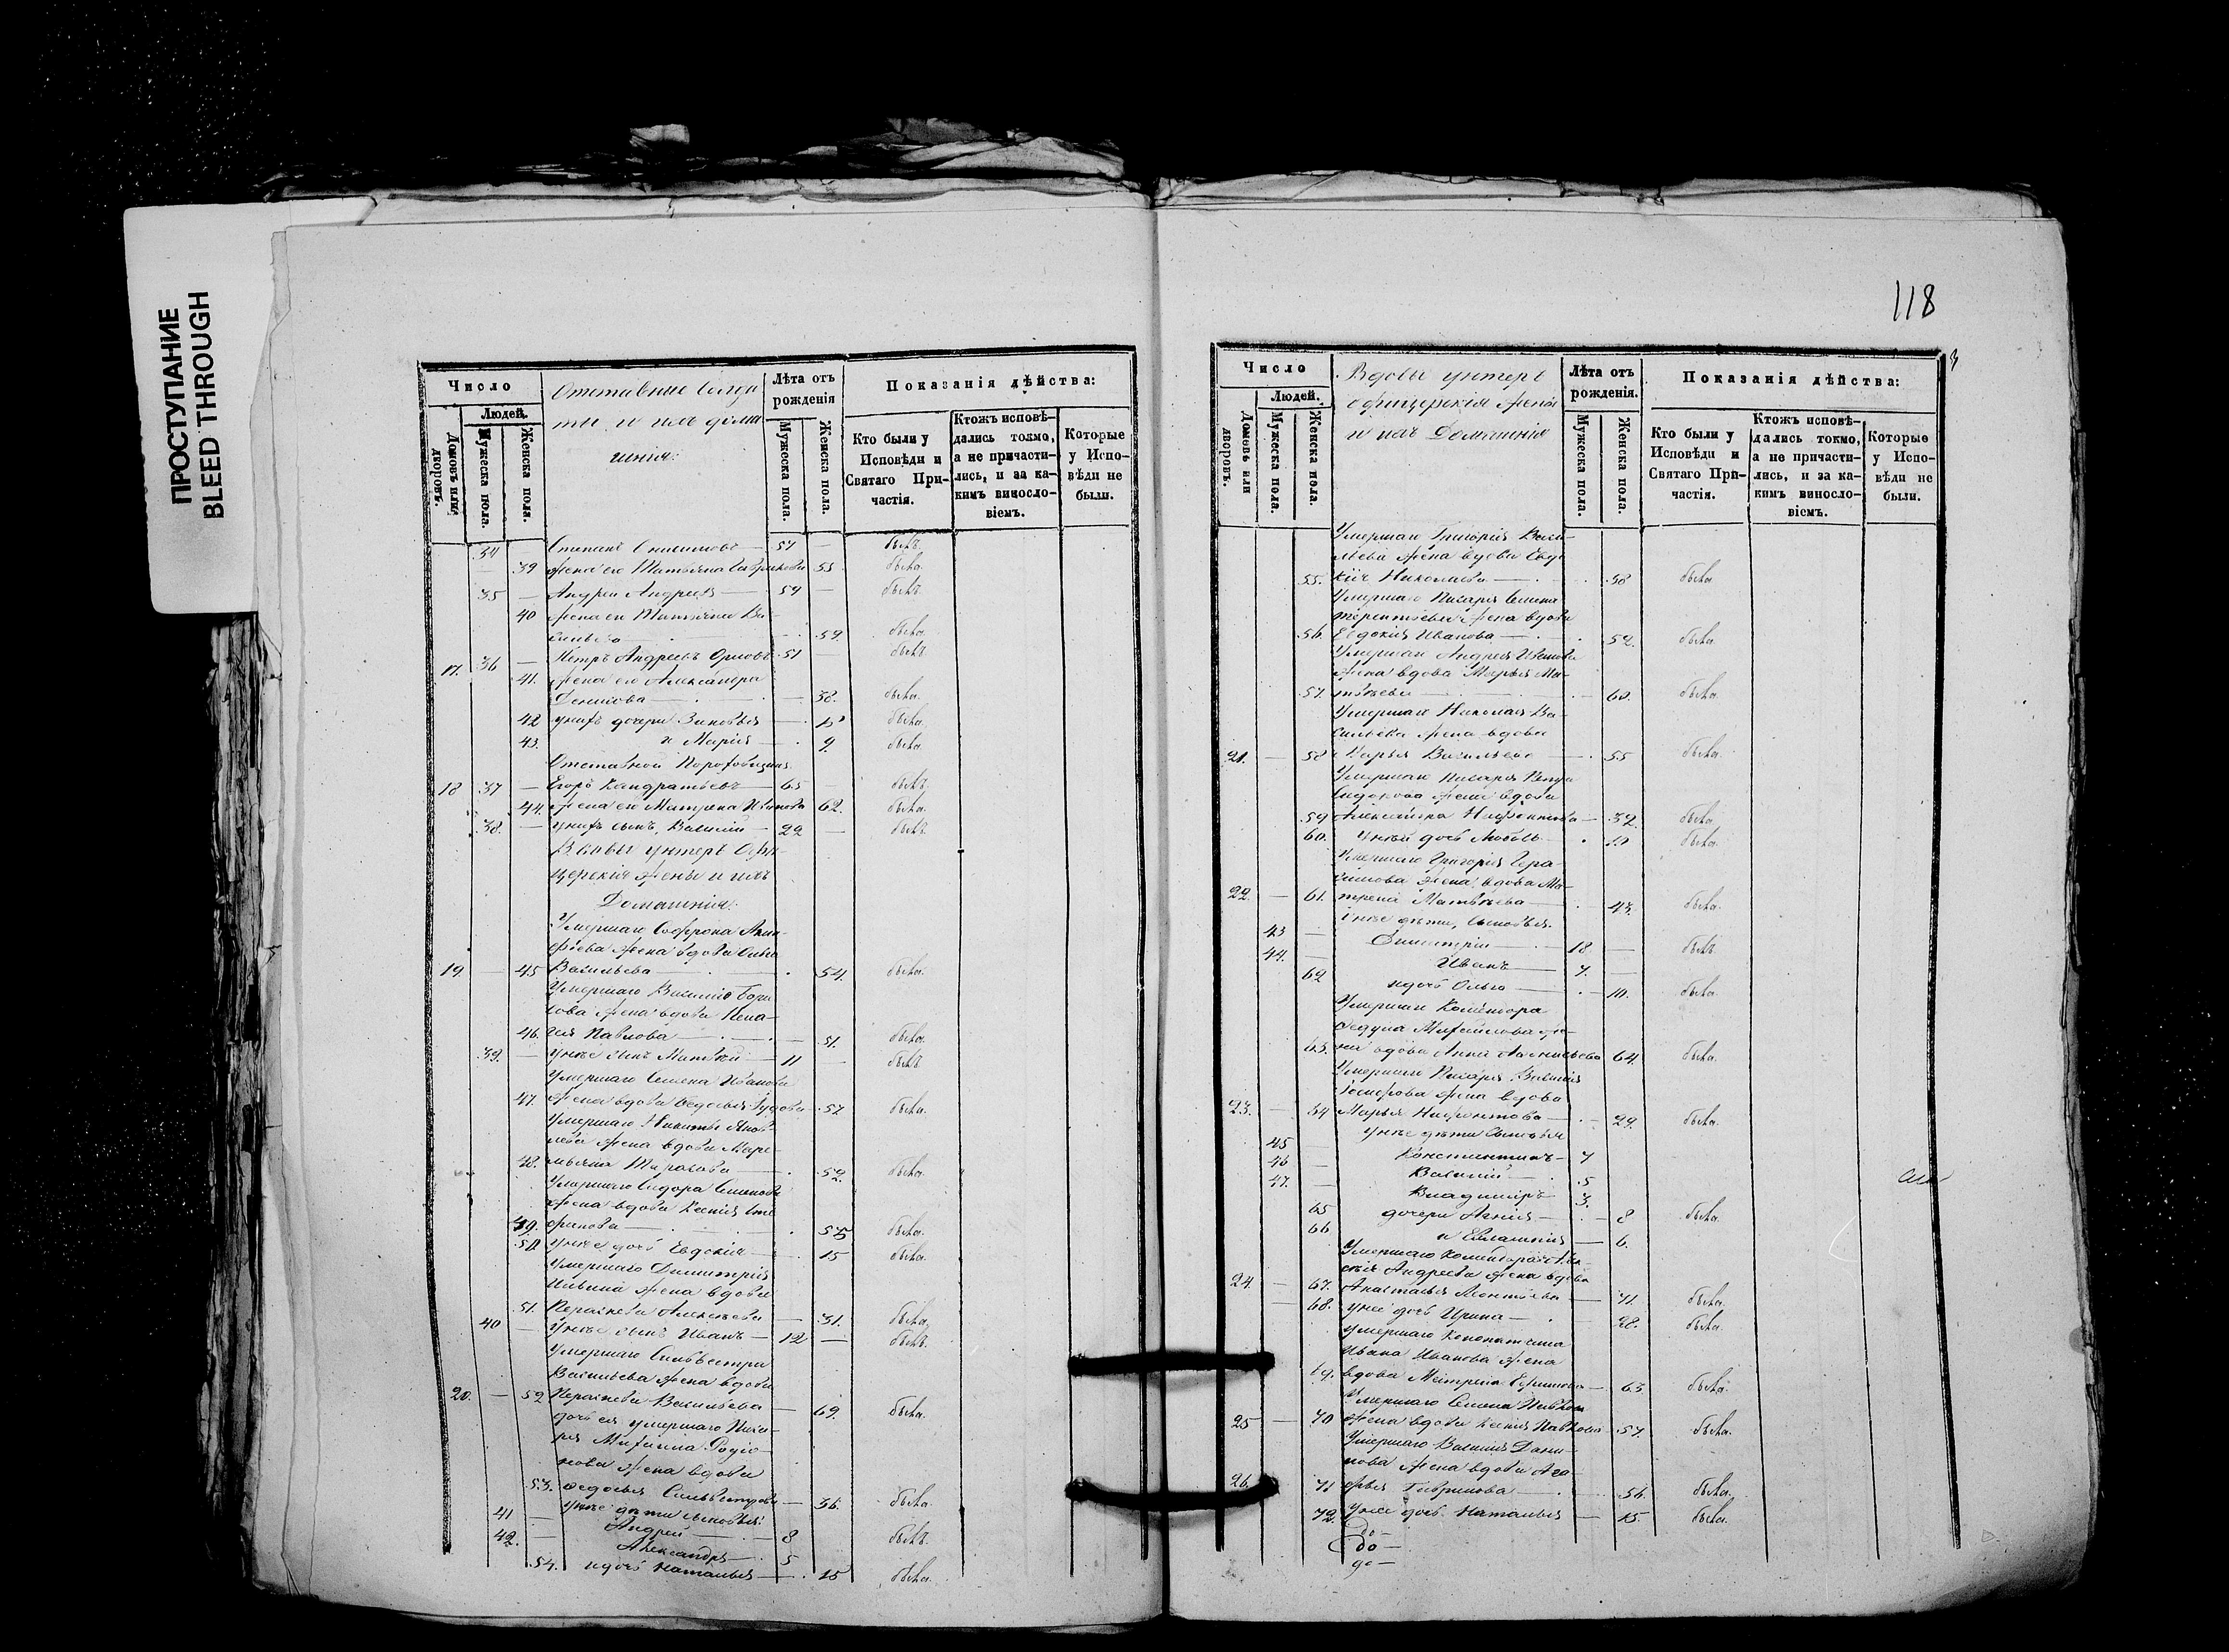 ПРОСТУПАНИЕ
BLEED THROUGH
Число
Людей.
Домовъ или дворовъ.
Мужеска пола.
Женска пола.
Отставные Солда
ты и ихъ дома
шнія:
Лѣта отъ рожденія
Мужеска пола.
Женска пола.
Показанія дѣйства:
Кто были у Исповѣди и Святаго Причастія.
Ктожъ исповѣдались токмо, а не причастились, и за какимъ винословіемъ.
Которые у Исповѣди не были.
34 — Степанъ Онисимовъ — 57 — былъ
39 жена его Татьяна Гаврилова 55 была
35 — Андрей Андреевъ — 59 — былъ
40 жена его Татьяна Ва-
сильева — 59. была
17. 36 — Петръ Андреевъ Орловъ 51 — былъ
41. жена его Александра
Денисова — 38. была
42 у нихъ дочери Зиновья — была
43. и Марія — 9. была
Отставной
18 37 — Егоръ Кандратьевъ — 65 — былъ
44. жена его Матрена Иванова 62. была
38. — у нихъ сынъ, Василій — 22 — былъ
Вдовы унтеръ Офи-
церскія жены и ихъ
Домашнія:
Умершаго Софрона
жена вдова
19. — 45 Васильева — 54. была
Умершаго Василія Бори
сова жена вдова Пела-
46. гея Павлова — 51. была
39. — у нее сынъ Матвѣй — 11 — былъ
Умершаго Семена Иванова
47. жена вдова Федосья 57 была
Умершаго Никиты Яков-
лева жена вдова Маре-
48. мьяна Тарасова — 52. была
Умершаго Сидора Семенова
жена вдова Ксенія Сте
49. фанова — 55 была
50 у нее дочь Евдокія — 15 была
Умершаго Димитрія
Ильина жена вдова
51. Парасковья Алексѣева — 31. была
40 — у нее сынъ Иванъ — 12 — былъ
Умершаго Сильвестра
Васильева жена вдова
20. — 52 Васильева — 69. была
дочь ея умершаго Писа-
ря Михаила Родіо-
нова жена вдова
53. Федосья Сильвестрова — 36. была
41 — у нее дѣти сыновья:
Андрей — 8 былъ
42. Александръ — 5
54. и дочь Наталья — 15 была
118
3
Число
Людей.
Домовъ или дворовъ.
Мужеска пола.
Женска пола.
Вдовы унтеръ
офицерскія жены
и ихъ Домашнія
Лѣта отъ рожденія.
Мужеска пола.
Женска пола.
Показанія дѣйства:
Кто были у Исповѣди и Святаго Причастія.
Ктожъ исповѣдались токмо, а не причастились, и за какимъ винословіемъ.
Которые у Исповѣди не были.
Умершаго Григорія Васи-
льева жена вдова Евдо
55. кія Николаева — 58 была
Умершаго Писаря Семена
Терентьева жена вдова
56. Евдокія Иванова — 52. была
Умершаго Андрея Иванова
жена вдова Марья Ма-
57. твѣева — 60. была
Умершаго Николая Ва-
сильева жена вдова
21. — 58 Дарья Васильева — 55 была
Умершаго Писаря Петра
Сидорова жена вдова
59 Александра — 32. была
60. У ней дочь Любовь — была
Умершаго Григорія Гера-
симова жена вдова Ма-
22. — 61. трена Матвѣева — 43. была
у нее дѣти, сыновья.
43 — Димитрій — 18 — былъ
44. — Иванъ — 7. —
62 и дочь Ольга — 10. была
Умершаго Комендора
Федула Михайлова же-
63. на вдова Анна 64. была
Умершаго Писаря Василія
жена вдова
23. — 64 Марья — 29. была
у нее дѣти сыновья
45 Константинъ — 7
46 — Василій — 5
47. — Владиміръ 3.
65 дочери Агнія — 8 была
66 и Евлампія — 6.
Умершаго Комендора
Андреева жена вдова
24. — 67. Анастасья — 71. была
68. у нее дочь Ирина — 28. была
Умершаго Конопатчика
Ивана Иванова жена
69. вдова Матрена Ефимова — 63 была
Умершаго Семена Павлова
25 — 70 жена вдова Ксенія Павлова 57. была
Умершаго Василія Дани-
лова жена вдова Ага-
26. 71 фья Гаврилова — 56. была
72. у нее дочь Наталья — 15. была
до —
до —
до —